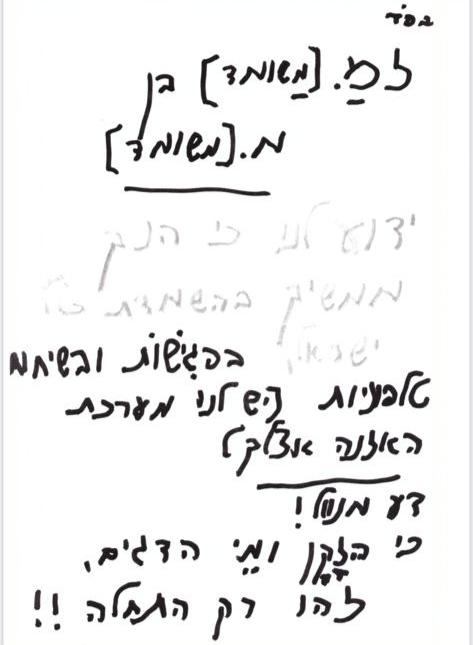 בס"ד
[משומד] בן
מ. [משומד]
ידוע לנו כי הנך
ממשיך בהשמדת כלל
ישראל,
בפגישות ובשיחות
טלפוניות (יש לנו מערכת
האזנה אצלך)
דע מנוול!
כי הזקן ומי הדגים,
זהו רק התחלה !!